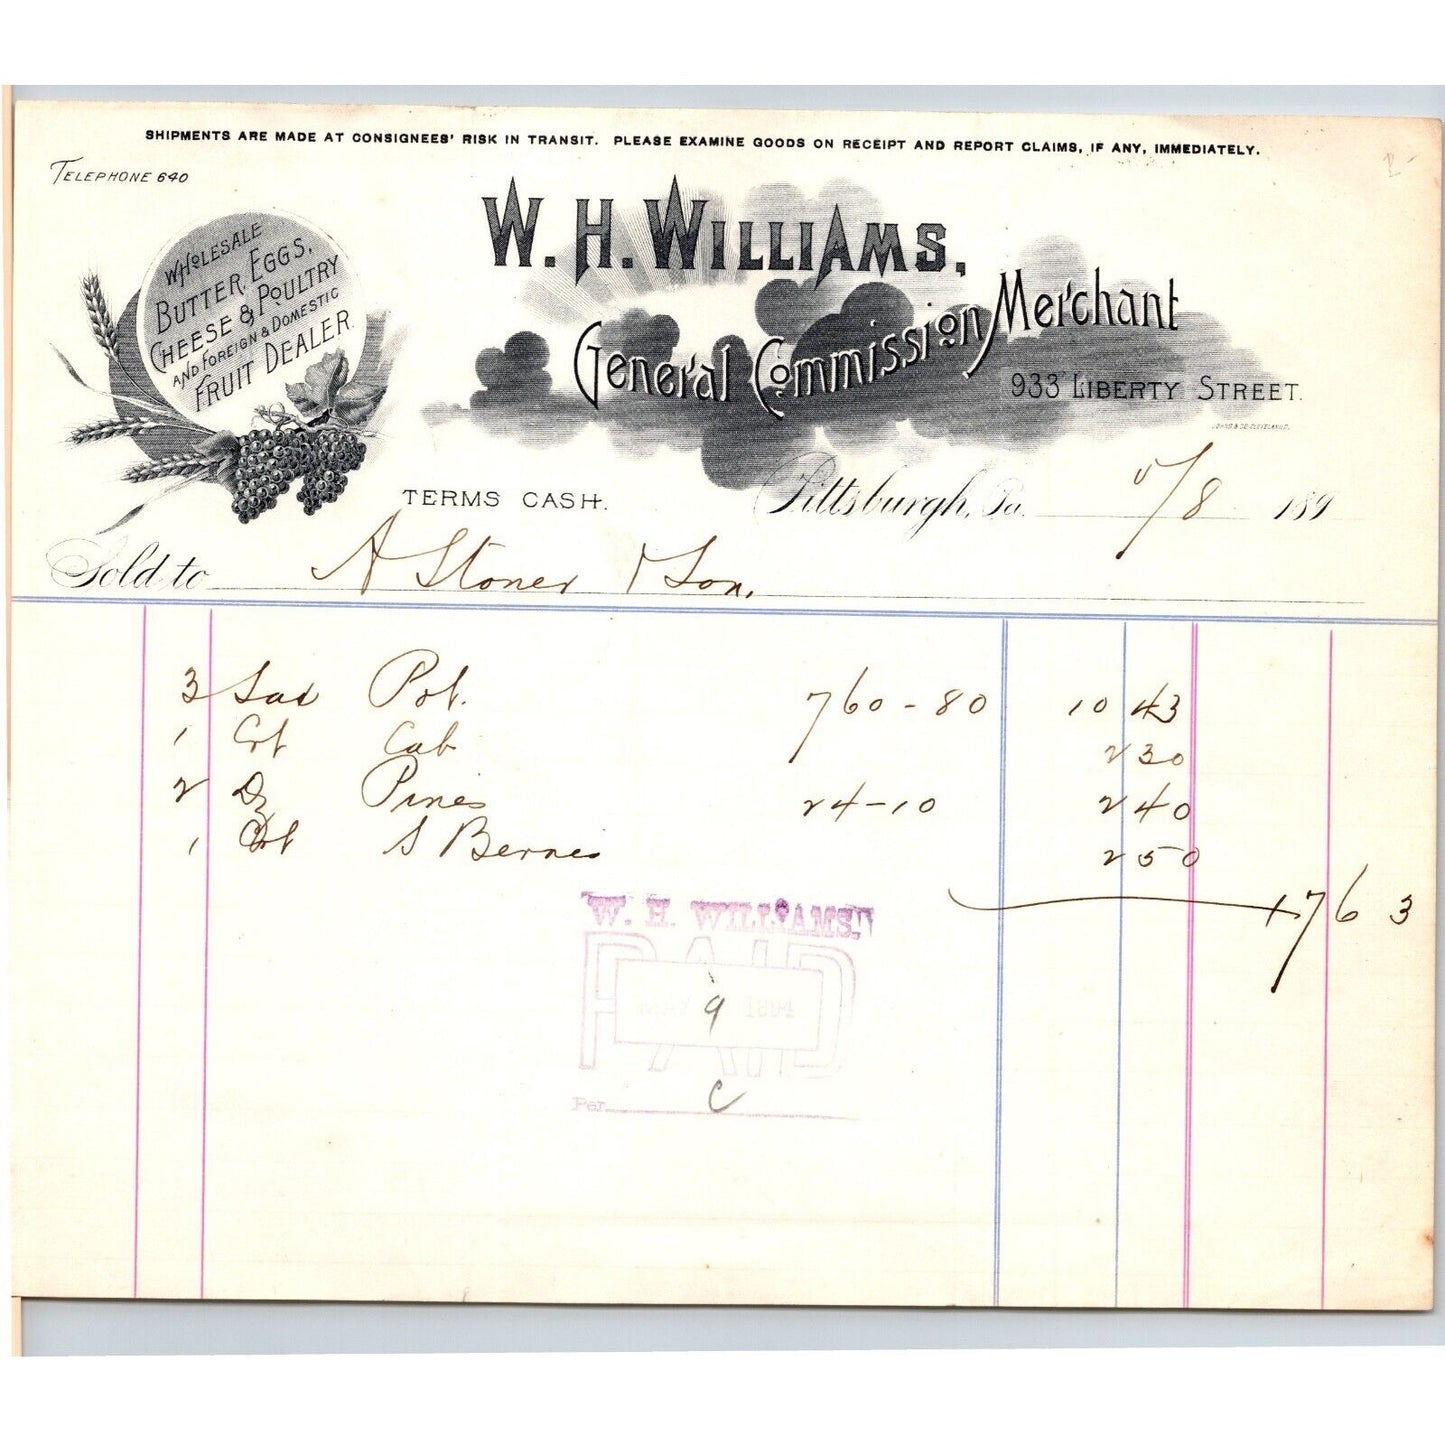 SHIPMENTS ARE MADE AT CONSIGNEES' RISK IN TRANSIT. PLEASE EXAMINE GOODS ON RECEIPT AND REPORT CLAIMS, IF ANY, IMMEDIATELY.
TELEPHONE 640
WHOLESALE
BUTTER, EGGS,
CHEESE & POULTRY
AND FOREIGN & DOMESTIC
FRUIT DEALER.
W. H. WILLIAMS,
General Commission Merchant
933 LIBERTY STREET.
TERMS CASH.
Pittsburgh, Pa. 5/8 189
Sold to A Stoner & Son.
3 Sax Pot. 760-80 10 43
1 Crt Cab 2 30
2 Dz Pines 24-10 2 40
1 Crt S Berries 2 50
17 63
W. H. WILLIAMS,
PAID
MAY 9 1894
Per C